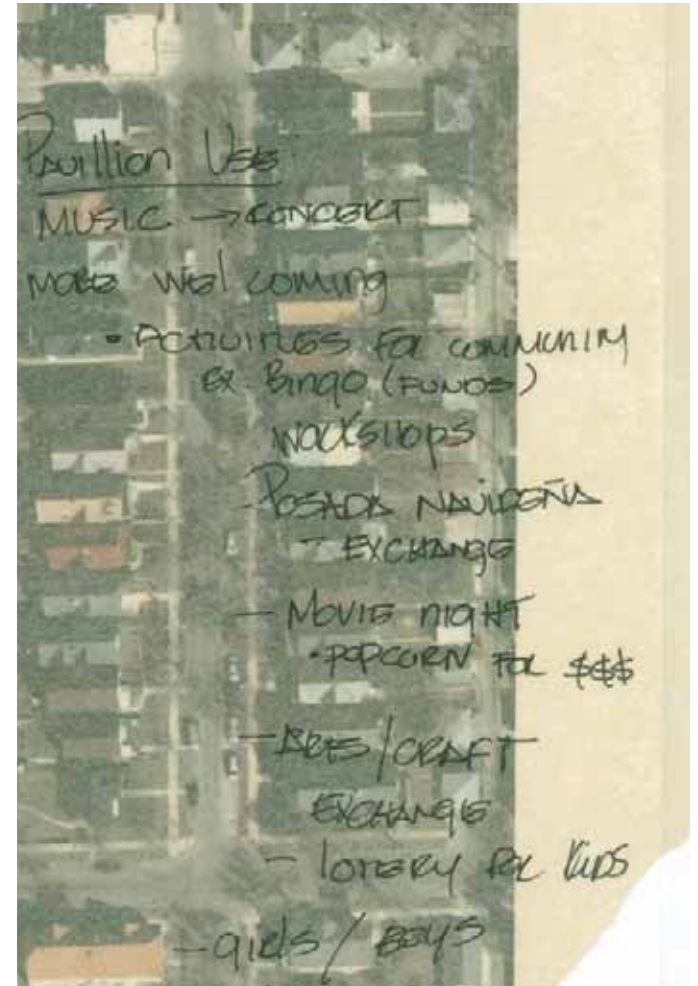 Pavillion Use:
MUSIC → CONCERT
MORE Wel coming
• ACTIVITIES FOR COMMUNITY
EX. Bingo (FUNDS)
WORKSHOPS
- POSADA NAVIDEÑA
- EXCHANGE
- MOVIE NIGHT
• POPCORN FOR $$$
- ARTS / CRAFT
EXCHANGE
- LOTTERY FOR KIDS
- girls / BOYS